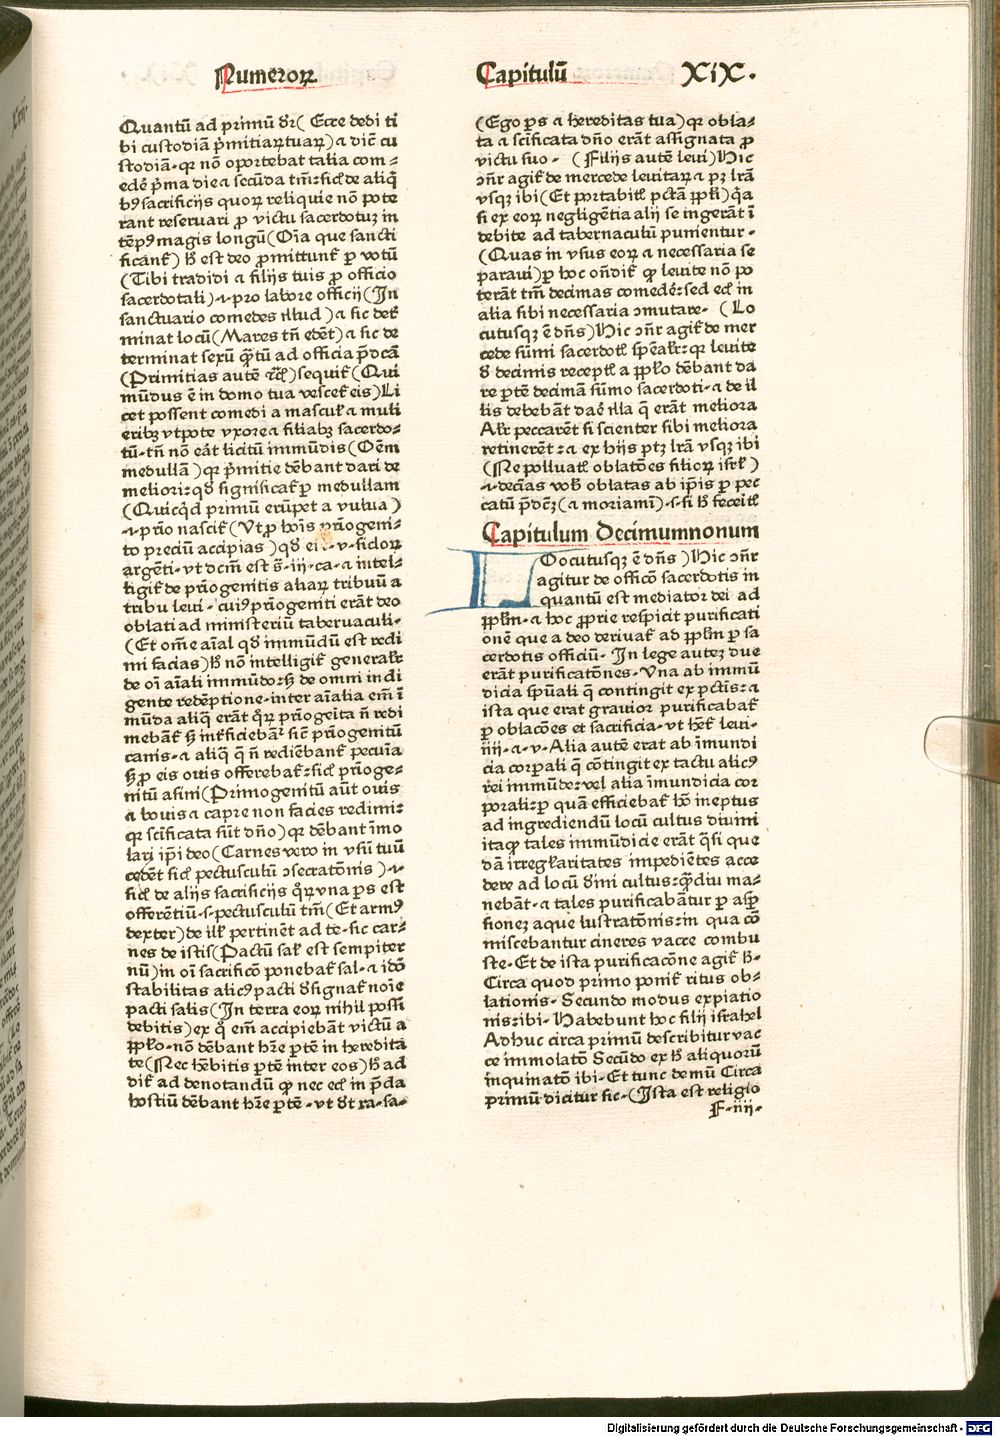 Numeroꝝ
Capitulū XiX.
Quantū ad primū dr̄( Ecce dedi ti
bi custodiā p̄mitiaꝝ tuaꝝ)a dic̄ cu
stodiā.qꝛ nō oportebat talia com⸗
edē p̄ma die a secūda tm̄:ficl̄ de aliq̄
bꝰ sacrificijs quoꝝ reliquie nō pote
rant reseruari ꝓ victu sacerdotuꝫ in
tēpꝰ magis longū(Oīa que sancti
ficant̄) hꝭ est deo ꝓmittunt̄ ꝑ votū
(Tibi tradidi a filijs tuis ꝓ officio
sacerdotali).i.pro labore officij(In
sanctuario comedes illud)a sic det̄
minat locū(Mares tn̄ edēt)a sic de
terminat sexū qꝫtū ad officia p̄dcā
(Primitias autē ꝛc̄)sequit̄(Qui
mūdus ē in domo tua vescet̄ eis)Li
cet possent comedi a mascul̄ a muli
eribꝫ vtpote vxore a filiabꝫ sacerdo⸗
tū.tn̄ nō eāt licitū immūdis(Oēm
medullā)qꝛ p̄mitie dēbant dari de
meliori:qd̄ significat̄ ꝑ medullam
(Quicqͥd primū erūpet a vulua)
.i.prīo nascit̄(Vt ꝓ hoīs prīogeni⸗
to preciū accipias)qd̄ .v.sicloꝝ
argēti.vt dcm̄ est s̄.iij.ca.a intel⸗
ligit̄ de prīogenitis aliaꝝ tribuū a
tribu leui.cuiꝰ prīogeniti erāt deo
oblati ad ministeriū tabernaculi.
(Et om̄e aīal qd̄ immūdū est redi
mi facias)hꝭ nō intelligit̄ generalr̄
de oī aīali immūdo:sꝫ de omni indi
gente redēptione.inter aīalia em̄ ī
mūda aliq̄ erāt qͦꝝ prīogeīta n̄ redi
mebāt̄ sꝫ int̄ficiebāt̄ sic̄ prīogenitū
canis.a aliq̄ q̄ n̄ rediēbant̄ pecuīa
sꝫ ꝓ eis ouis offerebat̄:sicl̄ prīoge⸗
nitū asini(Primogenitū aūt ouis
a bouis a capre non facies redimi:
qꝛ sc̄ificata sūt dn̄o)qꝛ dēbant īmo
lari ip̄i deo(Carnes vero in vsū tuū
cedēt sicl̄ pectusculū ↄsecratōnis).i.
sicl̄ de alijs sacrificijs qͦꝝ vna ꝑs est
offerētiū.s.pectusculū tm̄(Et armꝰ
dexter)de ill̄ pertinēt ad te.sic car⸗
nes de istis(Pactū sal̄ est sempiter
nū)in oī sacrificō ponebat̄ sal.a idō
stabilitas alicꝰ pacti d̄signat̄ noīe
pacti salis(In terra eoꝝ nihil possi
debitis)ex q̄ em̄ accipiebāt victū a
ꝑpl̄o.nō dēbant hr̄e ꝑtē in heredita
te(Nec hēbitis ꝑtē inter eos)hꝭ ad
dit̄ ad denotandū ꝙ nec ecl̄ in p̄da
hostiū dēbant hr̄e ꝑtē.vt dꝛ ra.sa⸗
(Ego ꝑs a hereditas tua)qꝛ obla⸗
ta a sc̄ificata dn̄o erāt assignata ꝓ
victu suo. (Filijs autē leui)Hic
ↄn̄r agit̄ de mercede leuitaꝝ a pꝫ lr̄a
vsqꝫ ibi(Et portabūt pctā ꝑpl̄i)qͣa
si ex eoꝝ negligētia alij se ingerāt ī
debite ad tabernaculū punientur.
(Quas in vsus eoꝝ a necessaria se
paraui)ꝑ hoc on̄dit̄ ꝙ leuite nō po
terāt tm̄ decimas comedē:sed ecl̄ in
alia sibi necessaria ↄmutare. (Lo
cutusqꝫ ē dn̄s)Hic ↄn̄r agit̄ de mer
cede sūmi sacerdotꝭ spēalr̄:qꝛ leuite
d̄ decimis receptꝭ a ꝑpl̄o dēbant da
re ꝑtē decimā sūmo sacerdoti.a de il
lis debebāt daē illa q̄ erāt meliora
Alr̄ peccarēt si scienter sibi meliora
retinerēt:a ex hijs ptꝫ lr̄a vsqꝫ ibi
(Ne polluatꝭ oblatōes filioꝝ isrl̄)
.i.decīas vob̄ oblatas ab ip̄is ꝑ pec
catū p̄dcꝫ(a moriamī).s.si hꝭ feceītꝭ
Capitulum Decimumnonum
LOcutusqꝫ ē dn̄s)Hic ↄn̄r
agitur de officō sacerdotis in
quantū est mediator dei ad
ꝑpl̄m.a hoc ꝓprie respicit purificati
onē que a deo deriuat̄ ad ꝑpl̄m ꝑ sa
cerdotis officiū. In lege auteꝫ due
erāt purificatōnes.Vna ab immū
dicia spūali q̄ contingit ex pctīs:a
ista que erat grauior purificabat̄
ꝑ oblacōes et sacrificia.vt het̄ leui.
iiij.a.v.Alia autē erat ab īmundi
cia corꝑali q̄ cōtingit ex tactu alicꝰ
rei immūde:vel alia īmundicia cor
porali:ꝑ quā efficiebat̄ hō ineptus
ad ingrediendū locū cultus diuini
itaqꝫ tales immūdicie erāt q̄si que
dā irregl̄aritates impediētes acce
dere ad locū diuīni cultus:qꝫdiu ma⸗
nebāt.a tales purificabātur ꝑ asꝑ
sioneꝫ aque lustratōnis:in qua cō
miscebantur cineres vacce combu
ste.Et de ista purificacōne agit̄ hꝭ.
Circa quod primo ponit̄ ritus ob⸗
lationis.Secundo modus expiatio
nis:ibi.Habebunt hoc filij israhel
Adhuc circa primū describitur vac
ce immolatō Secūdo ex hꝭ aliquorū
inquinatō ibi.Et tunc demū Circa
primū dicitur sic.(Ista est religio
F.iiij.
Digitalisierung gefördert durch die Deutsche Forschungsgemeinschaft - DFG